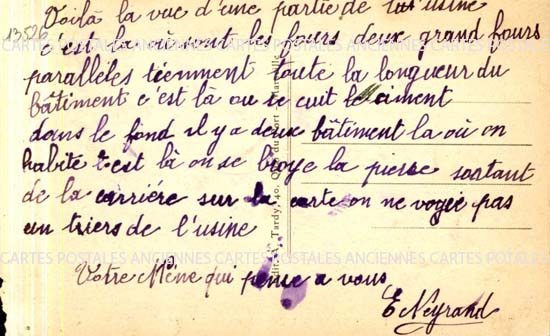 13526
Voilà la vue d'une partie de l'usine
c'est la où sont les fours deux grand fours
parallèles tiennent toute la longueur du
bâtiment c'est là ou se cuit le ciment
dans le fond il y a deux bâtiment la où on
habite c'est là on se broye la pierre sortant
de la carrière sur la carte on ne vogie pas
un tiers de l'usine
Votre Mène qui pense a vous
E Neyrand
Édit. P. Tardy, 40, Quai du Port Marseille
CARTES POSTALES ANCIENNES CARTES POSTALES ANCIENNES CARTES POSTALES